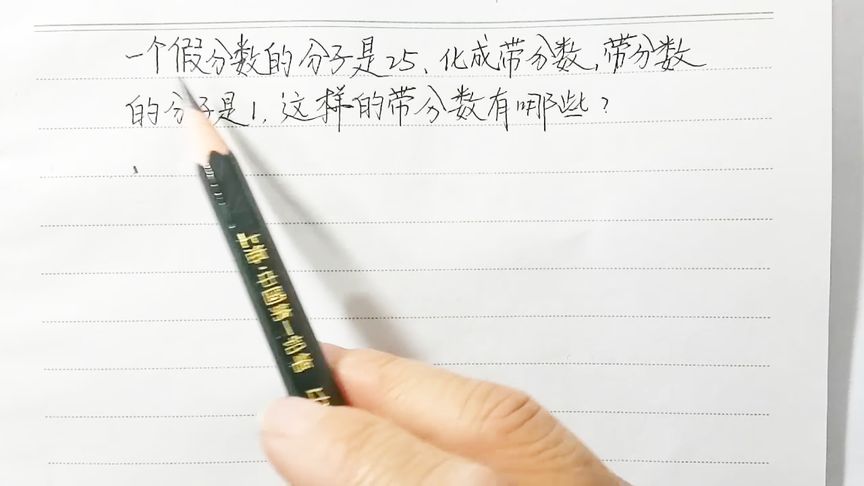 一个假分数的分子是25、化成带分数,带分数
的分子是1,这样的带分数有哪些?
上海·中国第一铅笔